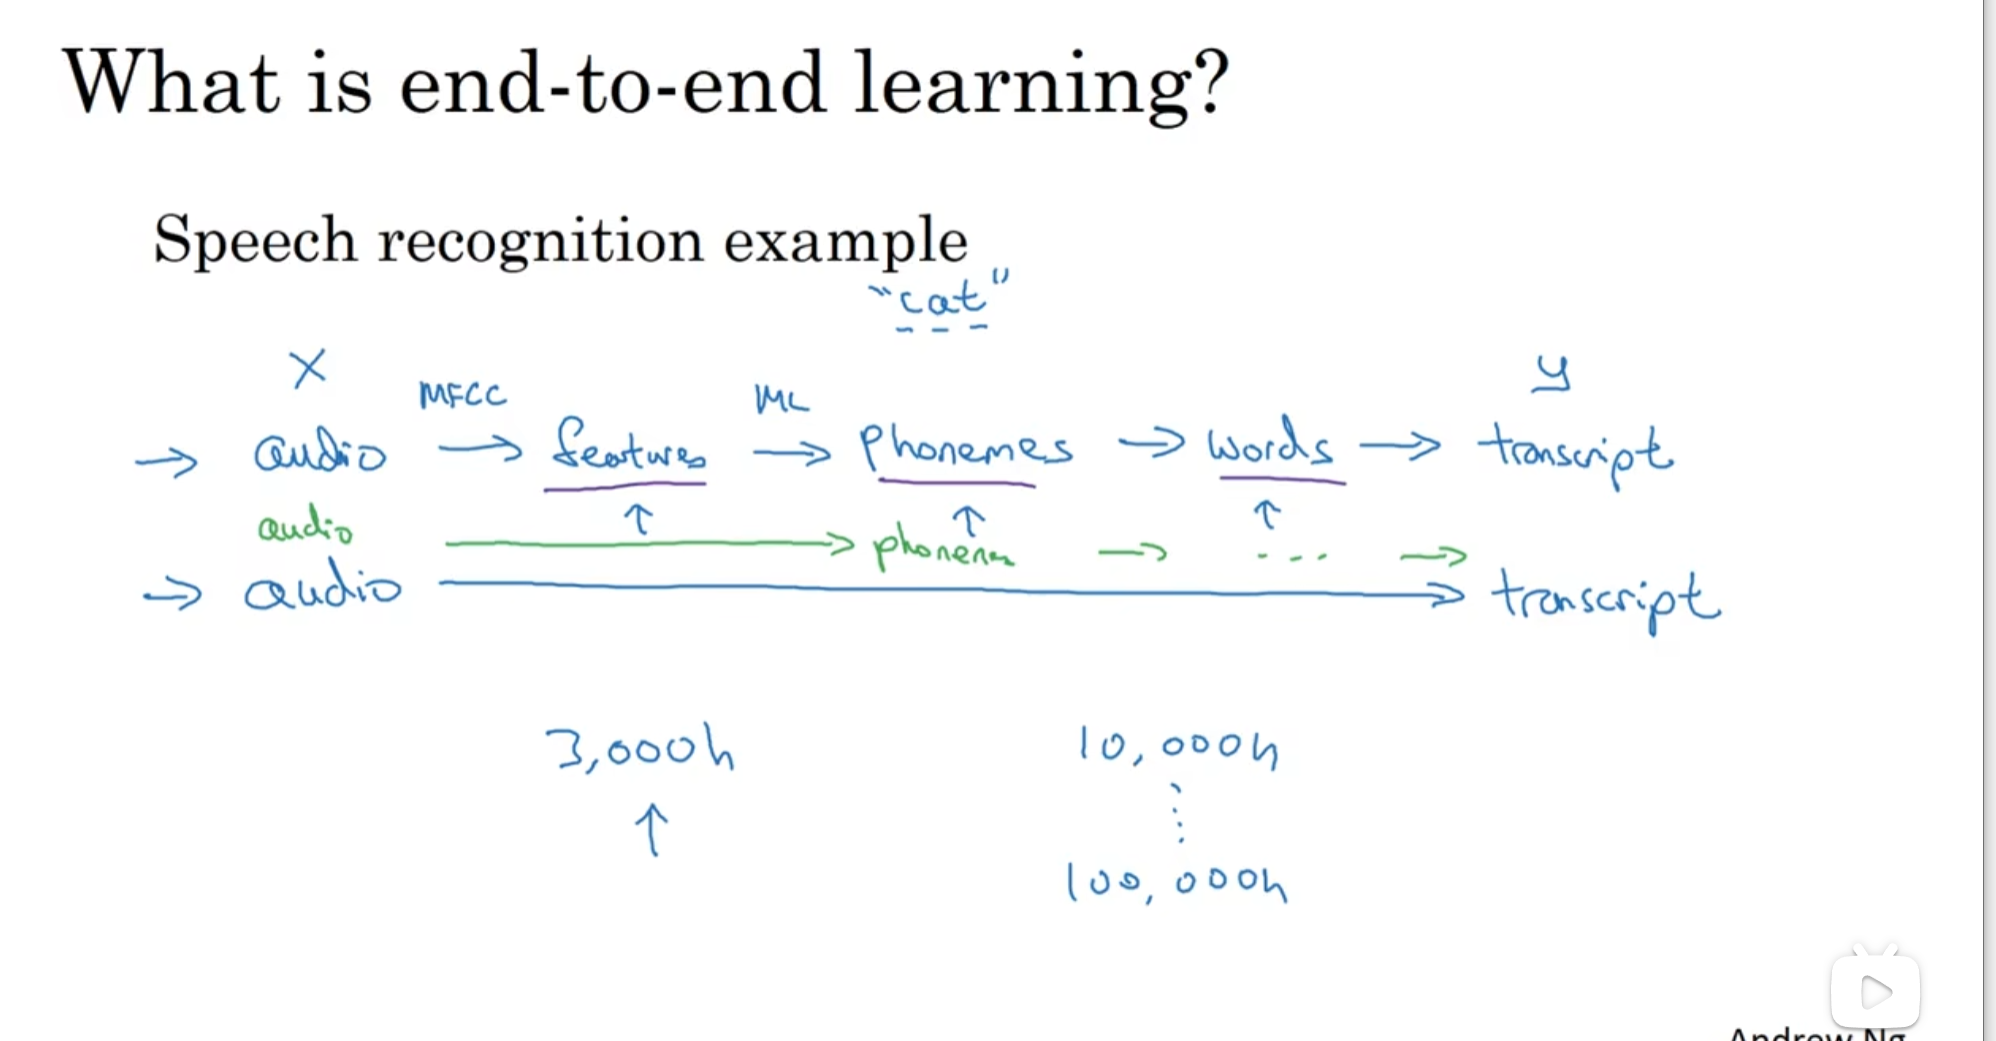 What is end-to-end learning?
Speech recognition example
"cat"
X MFCC ML y
→ audio → features → phonemes → words → transcript
↑ ↑ ↑
audio → phonemes → ... →
→ audio → transcript
3,000h 10,000h
↑ ⋮
100,000h
Andrew Ng